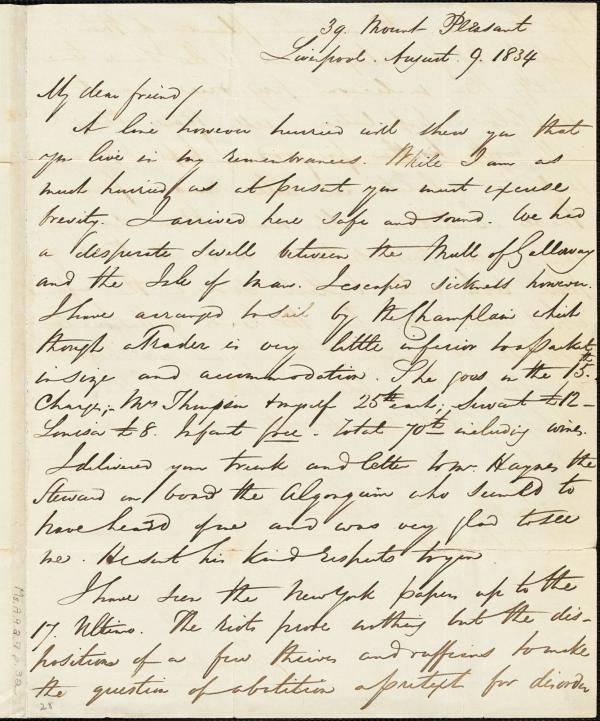 39. Mount Pleasant
Liverpool. August. 9. 1834
My dear friend/
A line however hurried will shew you that
you live in my remembrances. While I am as
much hurried as at present you must excuse
brevity. I arrived here safe and sound. We had
a desperate swell between the Mull of Galloway
and the Isle of Man. I escaped sickness however.
I have arranged to sail by the Champlain which
though a Trader is very little inferior to a packet
in size and accommodation. She goes on the 15th.
Charges; Mrs Thompson & myself 25£ each; Servant £12-
Louisa £8. Infant free. Total 70£ including wines.
I delivered your trunk and letter to Mr. Haynes the
Steward on board the Algonquin who seemed to
have heard of me and was very glad to see
me. He sent his kind respects to you.
I have seen the New York papers up to the
17. Ultimo. The riots prove nothing but the dis-
position of a few thieves and ruffians to make
the question of abolition a pretext for disorder
Ms.A.9.2.4 p.32
28